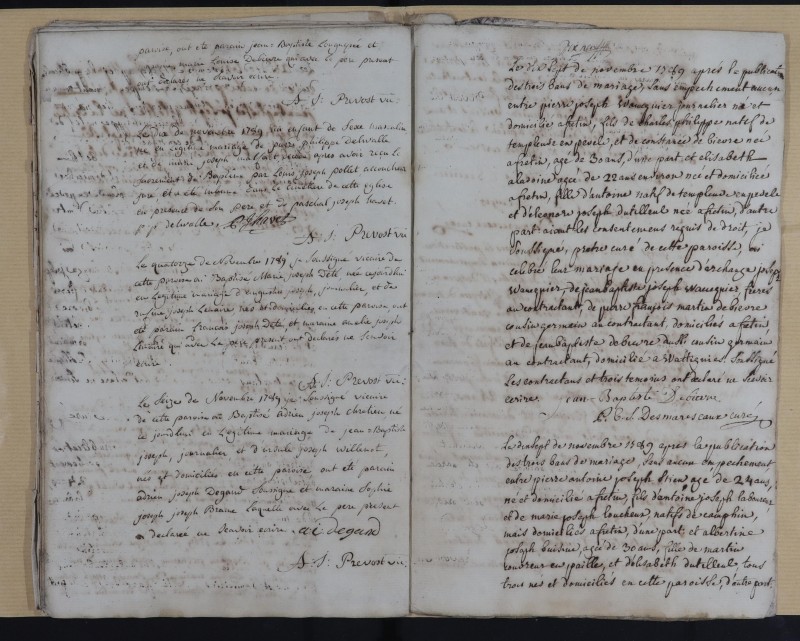 paroisse, ont été parain jean Baptiste
marie Louise Delievre qui avec le pere present
ont Déclaré ne Scavoir ecrire
A. J. Prevost vic:
Le dix de novembre 1789 un enfant de Sexe masculin
né en Legitime mariage de pierre philippe Delivalle
et de marie joseph decedé apres avoir reçu le
Sacrement de Baptême par Louis joseph pollet
juré a été inhumé dans le cimetiere de cette eglise
en presence de Son Pere et de paschal joseph havet.
p. p. delivalle. P J havet
A. J. Prevost vic
Le quatorze de Novembre 1789 je Soussigné vicaire de
cette paroisse ai Baptisé Marie joseph Dete née aujourdhui
en Legitime mariage d'augustin joseph, journalier et de
rufine joseph Lemaire nés et domiciliés en cette paroisse ont
été parain francois joseph Dete et maraine amelie joseph
Lemaire qui avec Le pere present ont declaré ne Scavoir
écrire.
A. J. Prevost vic:
Le Seize de Novembre 1789 je Soussigné vicaire
de cette paroisse ai Baptisé adrien joseph chretien, né
ce jourdhui en Legitime mariage de jean-Baptiste
joseph, journalier et d'ursule joseph Willemot,
nés et domiciliés en cette paroisse ont été parain
adrien joseph Degand Soussigné et maraine Sophie
joseph joseph Braine Laquelle avec Le pere present
a declarée ne Scavoir ecrire. adi degand
A. J. Prevost vic:
Dix neuf
Le dix Sept de novembre 1789 aprés la publication
des trois bans de mariage, Sans empechement aucun
entre pierre joseph Wauquier journalier né et
domicilié a fretin, fils de charles philippe natif de
templeuve en pevele, et de constance de bievre née
a fretin, age de 30 ans, d'une part, et elisabeth
aladoine agée de 22 ans environ née et domiciliée
a fretin, fille d'antoine natif de templeuve en pevele
et d'eleonore joseph dutilleul née a fretin, d'autre
part aiant les consentemens requis de droit, je
Soussigné, pretre curé de cette paroisse, ai
celebré leur mariage en presence d'archange joseph
Wauquier, de jean baptiste joseph Wauquier, freres
au contractant, de pierre françois martin de bievre
cousin germain au contractant, domiciliés a fretin,
et de jean baptiste de bievre dusse cousin germain
au contractant, domicilié a Wattignies. Soussigné
Les contractans et trois temoins ont declaré ne Scavoir
ecrire. Jean Baptiste Debievre
P. C. J. Desmarescaux curé
Le dix Sept de novembre 1789 aprés la publication
des trois bans de mariage, Sans aucun empechement
entre pierre antoine joseph Stien age de 24 ans,
né et domicilié a fretin, fils d'antoine joseph laboureur
et de marie joseph Loucheur, natifs de camphin,
mais domiciliés a fretin, d'une part, et albertine
joseph buisine agée de 30 ans, fille de martin
couvreur en pailles, et d'elisabeth dutilleul, tous
trois nés et domiciliés en cette paroisse, d'autre part.